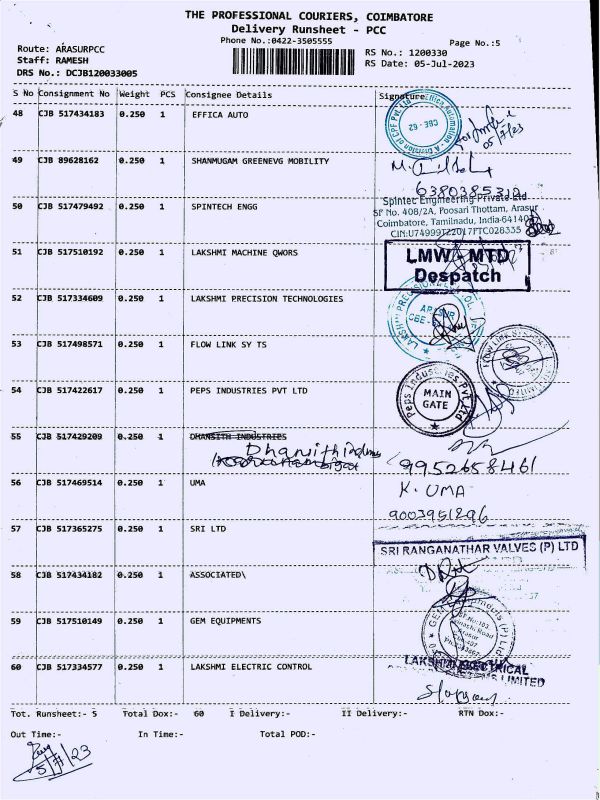 THE PROFESSIONAL COURIERS, COIMBATORE
Delivery Runsheet - PCC
Phone No.:0422-3505555
Page No.:5
Route: ARASURPCC
RS No.: 1200330
Staff: RAMESH
RS Date: 05-Jul-2023
DRS No.: DCJB120033005
S No Consignment No Weight PCS Consignee Details Signature
48 CJB 517434183 0.250 1 EFFICA AUTO
CBE - 62
05/7/23
49 CJB 89628162 0.250 1 SHANMUGAM GREENEVG MOBILITY
50 CJB 517479492 0.250 1 SPINTECH ENGG
Spintec Engineering Private Ltd
SF No. 408/2A, Poosari Thottam, Arasur
Coimbatore, Tamilnadu, India-641407
51 CJB 517510192 0.250 1 LAKSHMI MACHINE QWORS
LMW - MTD
Despatch
52 CJB 517334609 0.250 1 LAKSHMI PRECISION TECHNOLOGIES
53 CJB 498571 0.250 1 FLOW LINK SY TS
54 CJB 517422617 0.250 1 PEPS INDUSTRIES PVT LTD
Peps Industries Pvt Ltd
MAIN
GATE
55 CJB 517429209 0.250 1 DHANSITH INDUSTRIES
9952658461
56 CJB 517469514 0.250 1 UMA
K. UMA
9003951296
57 CJB 517365275 0.250 1 SRI LTD
SRI RANGANATHAR VALVES (P) LTD
58 CJB 517434182 0.250 1 ASSOCIATED\
59 CJB 517510149 0.250 1 GEM EQUIPMENTS
60 CJB 517334577 0.250 1 LAKSHMI ELECTRIC CONTROL
LAKSHMI ELECTRICAL
LIMITED
Tot. Runsheet:- 5 Total Dox:- 60 I Delivery:- II Delivery:- RTN Dox:-
Out Time:- In Time:- Total POD:-
5/7/23